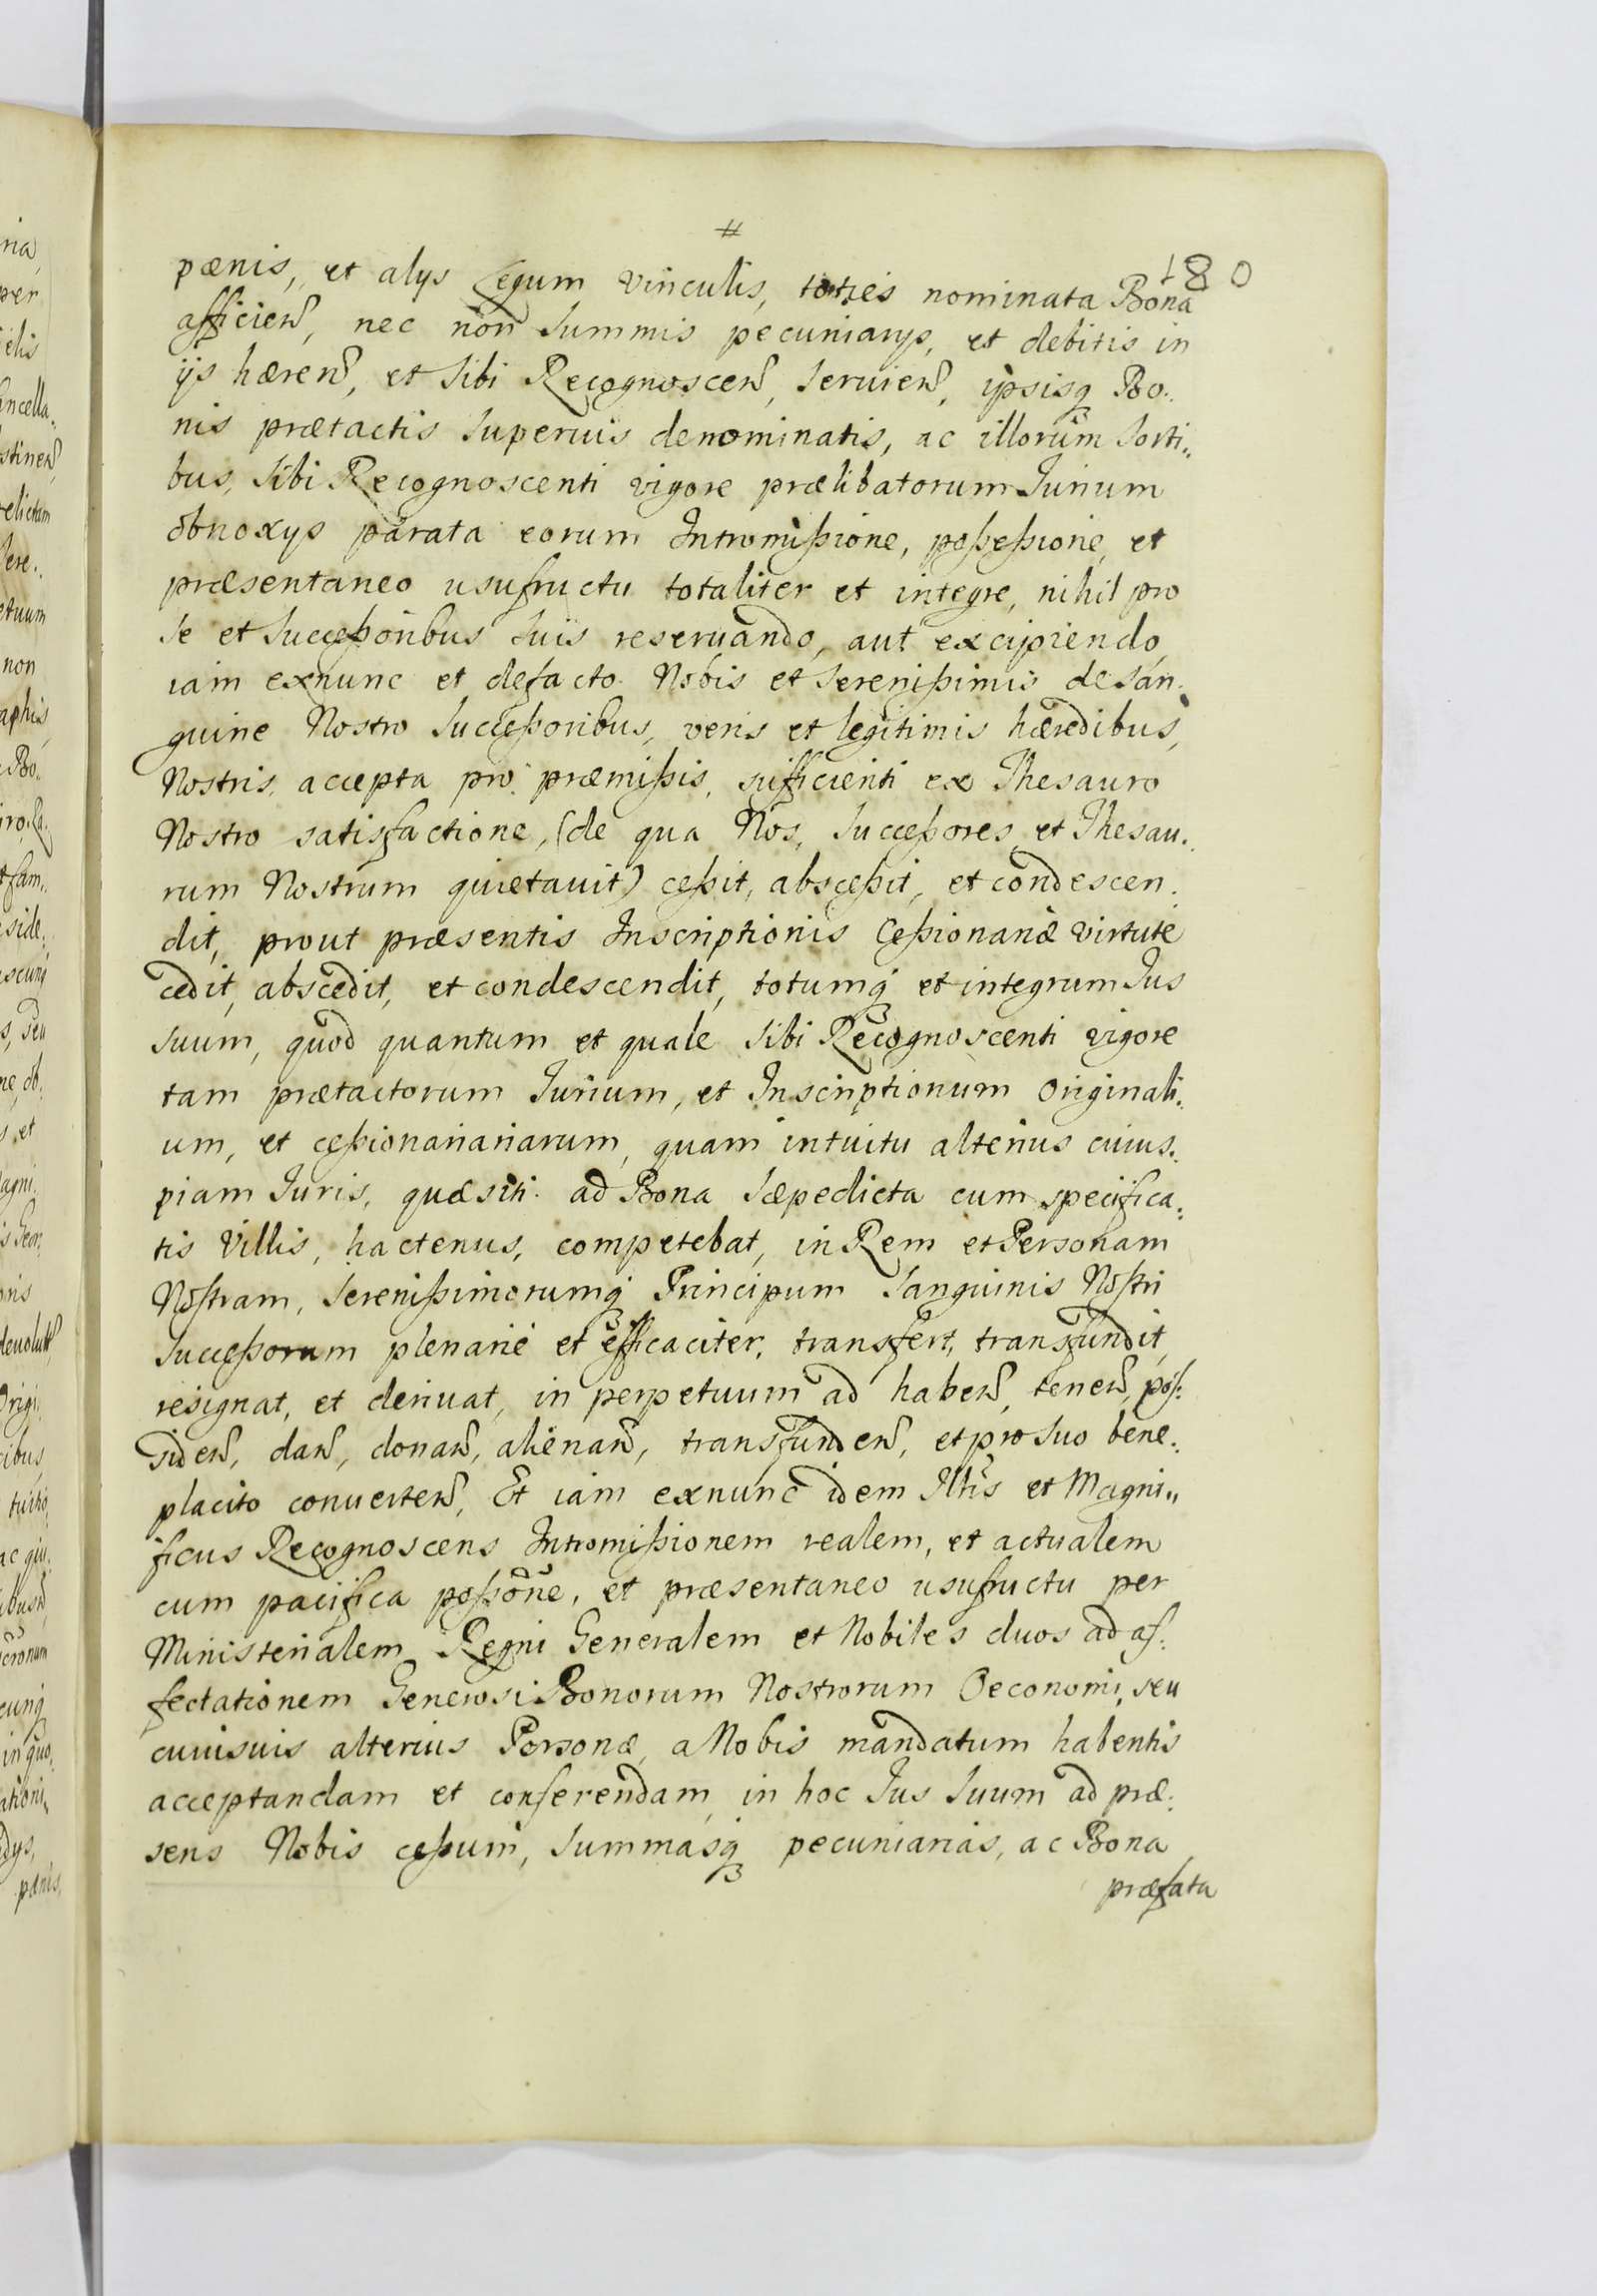 #
180
pænis, et alys Legum vinculis, toties nominata Bona
afficien, nec non Summis pecuniarys, et debitis in
ijs hæren, et Sibi Recognoscen, Seruien, ipsisq Bo:
nis prætactis Superius denominatis, ac illorum Sorti:
bus, Sibi Recognoscenti vigore prælibatorum Iurium
obnoxys parata eorum Intromißione, poßeßione, et
præsentaneo usufructu totaliter et integre, nihil pro
Se et Succeßoribus Suis reseruando, aut excipiendo,
iam exnunc et defacto Nobis et Sereníßimis de San:
guine Nostro Succeßoribus, veris et legitimis hæredibus,
Nostris, accepta pro præmißis, sufficienti ex Thesauro
Nostro satisfactione, (de qua Nos, Succeßores, et Thesau:
rum Nostrum quietauit) ceßit, absceßit, et condescen:
dit, prout præsentis Inscriptionis Ceßionariæ virtute
cedit, abscedit, et condescendit, totumq et integrum Ius
Suum, quod quantum et quale Sibi Recognoscenti vigore
tam prætactorum Iurium, et Inscriptionum Originali:
um, et ceßionariariarum, quam intuitu alterius cuius:
piam Iuris, quæsiti ad Bona Sæpedicta cum specifica:
tis Villis, hactenus, competebat, in Rem et Personam
Nostram, Sereníßimorumq Principum Sanguinis Nostri
Succeßorum plenarié et efficaciter, transfert, transfundit,
resignat, et deriuat, in perpetuum ad haben, tenen, pos:
siden, dan, donan, alienan, transfunden, et pro Suo bene:
placito conuerten, Et iam exnunc idem Illris et Magni:
ficus Recognoscens Intromißionem realem, et actualem
cum pacifica poßone, et præsentaneo usufructu per
Ministerialem Regni Generalem et Nobiles duos ad af:
fectationem Generosi Bonorum Nostrorum Oeconomi, seu
cuiusuis alterius Personæ, a Nobis mandatum habentis
acceptandam et conferendam, in hoc Ius Suum ad præ:
sens Nobis ceßum, Summasq pecuniarias, ac Bona
præfata